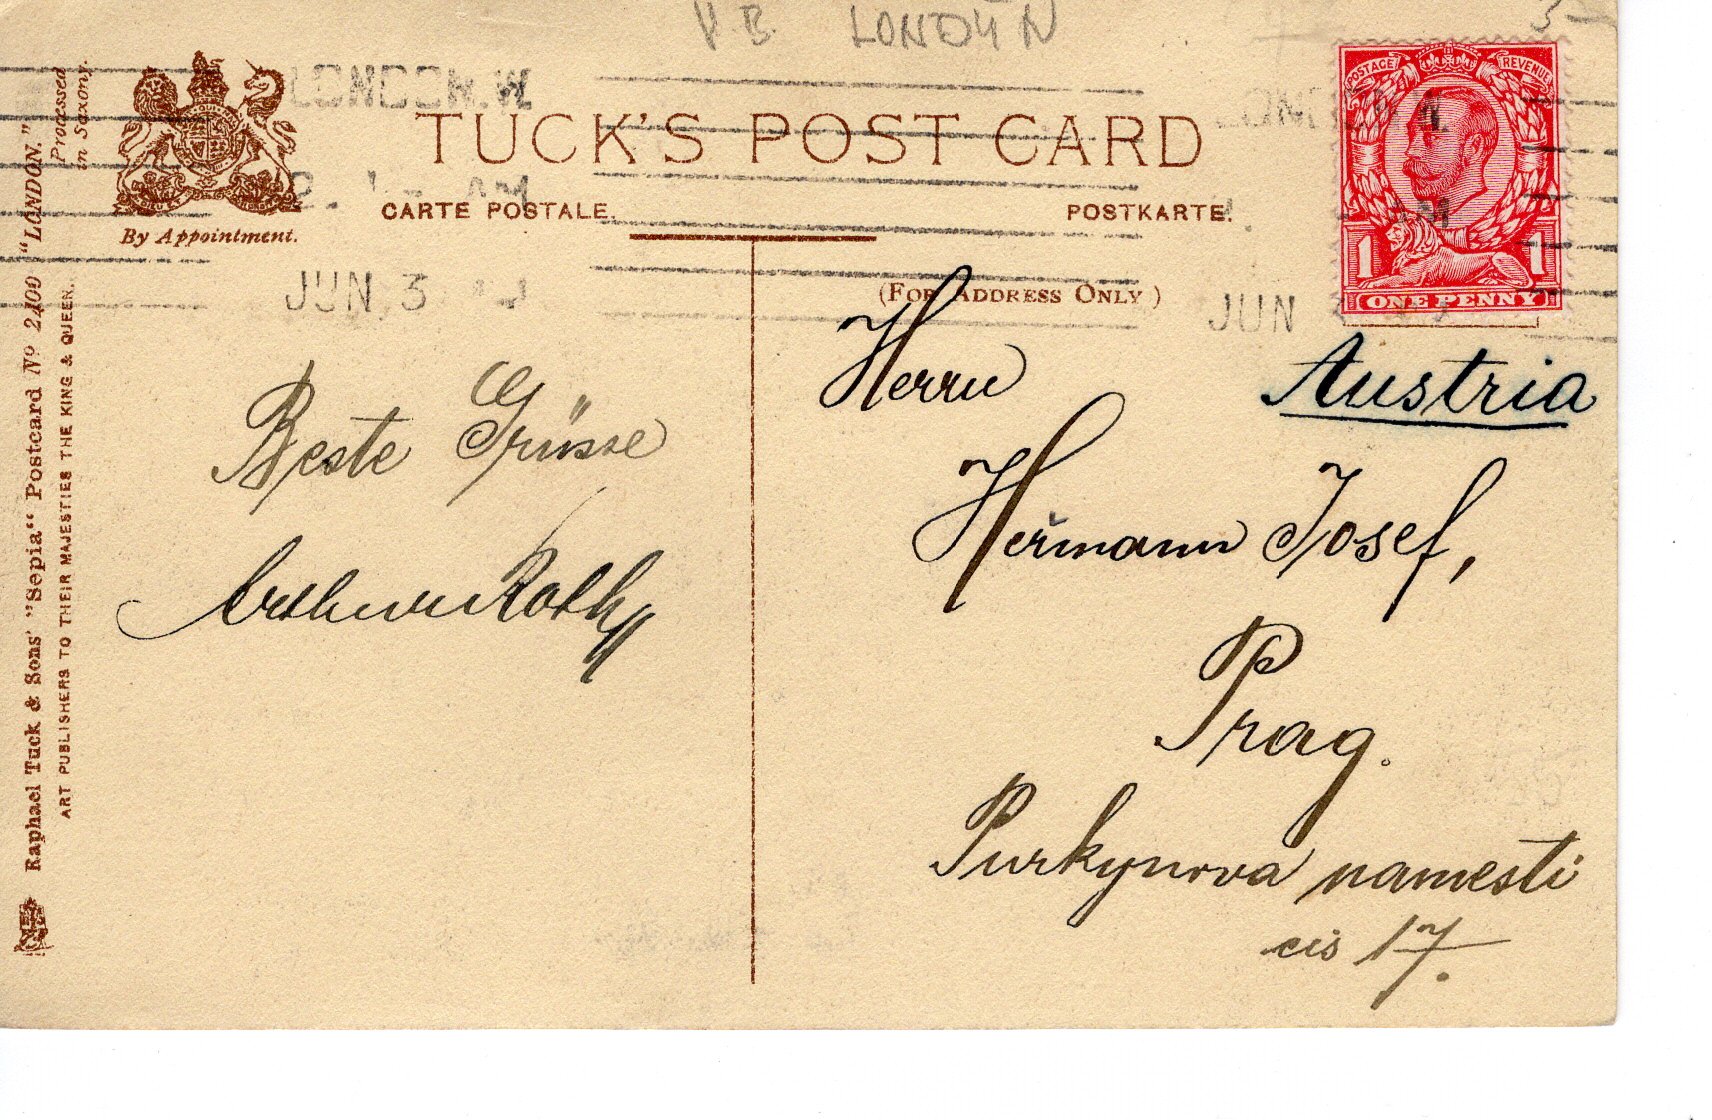 V.B. LONDÝN
3-
LONDON.W.
LONDON.W.
TUCK'S POST CARD
CARTE POSTALE.
POSTKARTE.
By Appointment.
Processed
in Saxony.
(FOR ADDRESS ONLY)
JUN 3
JUN
AM
POSTAGE
REVENUE
1 1
ONE PENNY
Raphael Tuck & Sons' "Sepia" Postcard No 2409 "LONDON."
ART PUBLISHERS TO THEIR MAJESTIES THE KING & QUEEN.
Beste Grüsse
Arthur Roth
Austria
Herrn
Heřmann Josef,
Prag.
Purkynova namesti
cis 17.